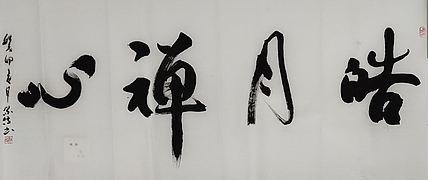 皓月禅心
癸卯春月